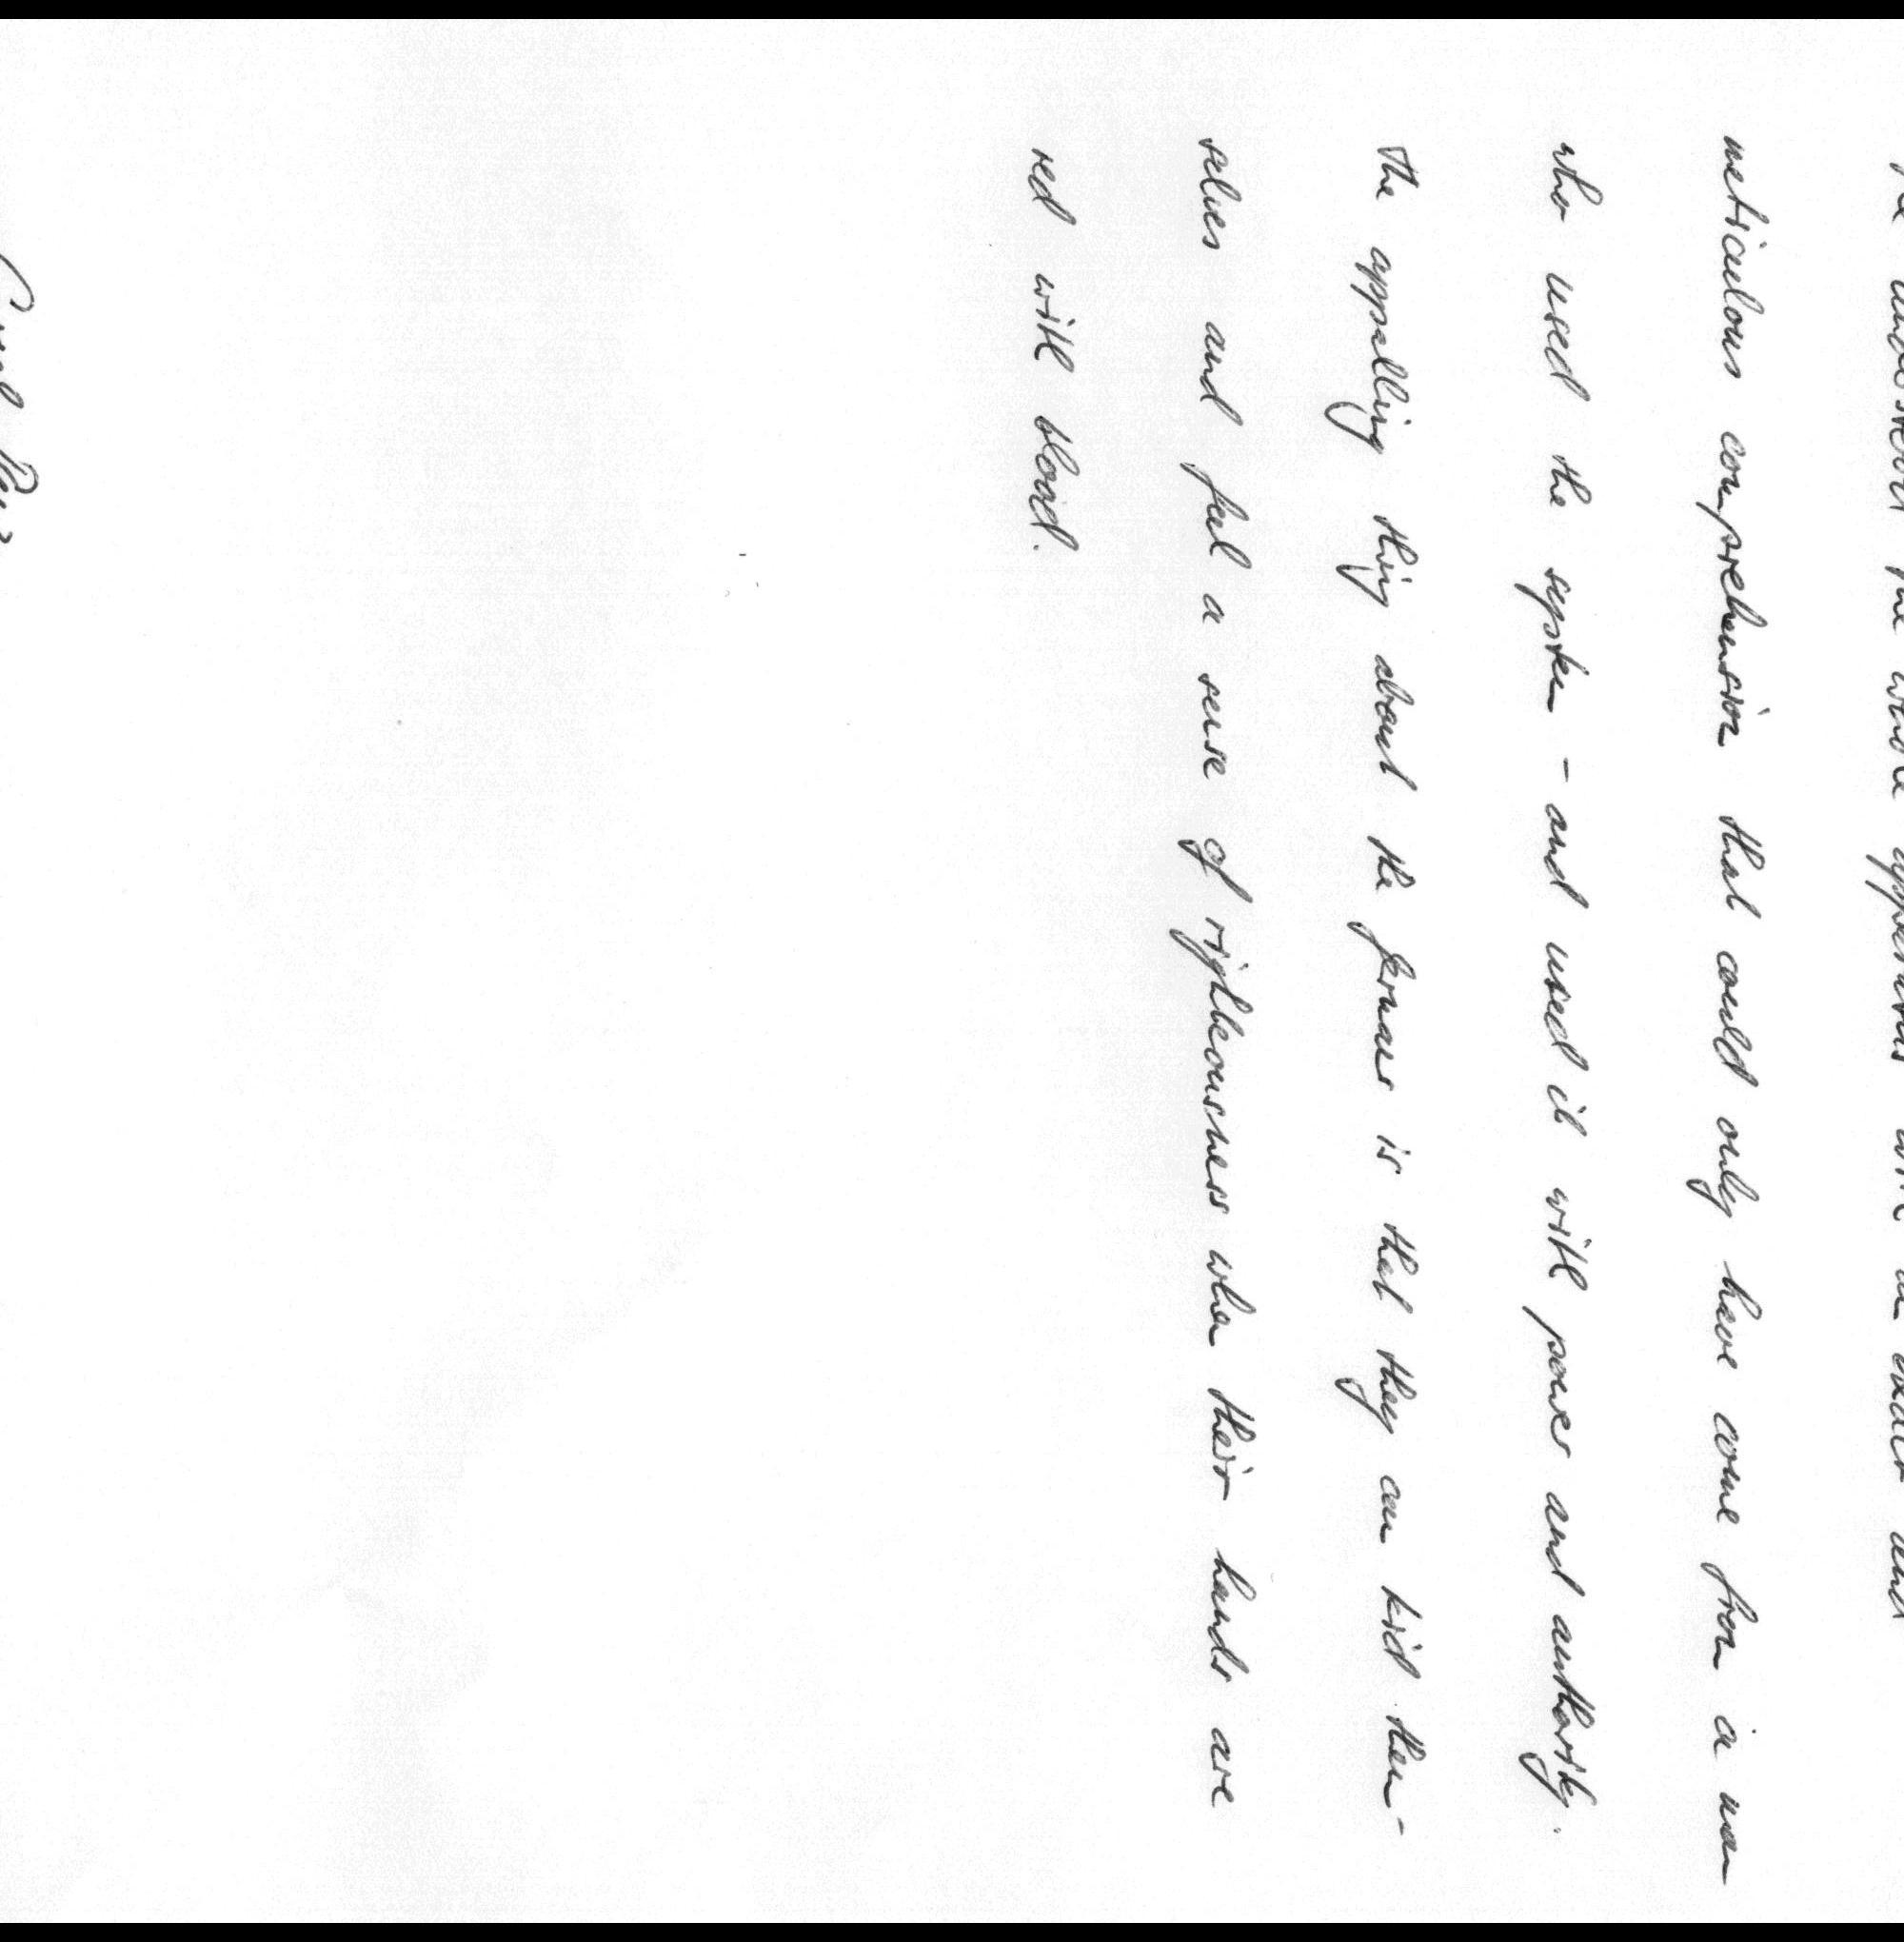 He understood the whole apparatus with an exact and
meticulous comprehension that could only have come from a man
who used the system - and used it with power and authority.
The appalling thing about the former is that they can kid them-
selves and feel a sense of righteousness when their hands are
red with blood.